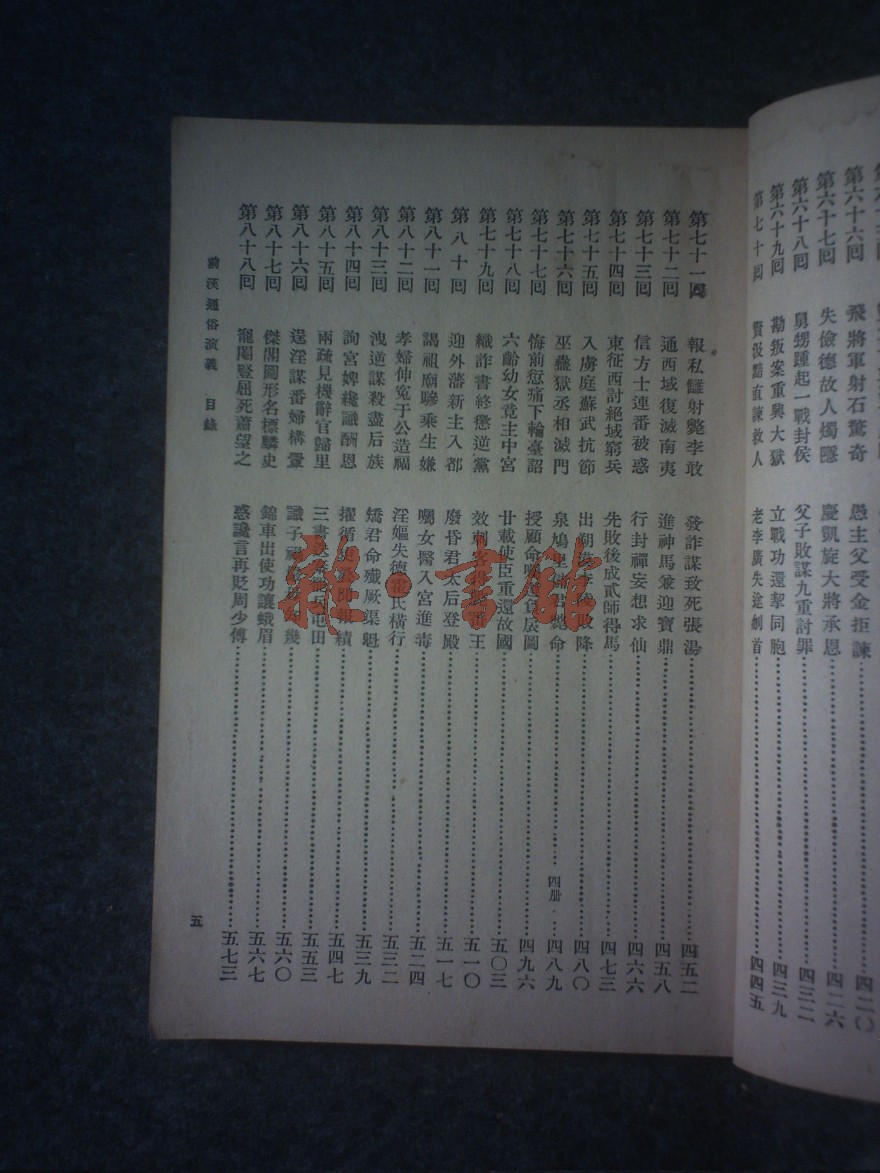 第六十六回 飛將軍射石驚奇 愚主父受金拒諫 四二〇
第六十七回 失儉德故人燭隱 慶凱旋大將承恩 四二六
第六十八回 舅甥踵起一戰封侯 父子敗謀九重討罪 四三二
第六十九回 勘叛案重興大獄 立戰功還挈同胞 四三九
第七十回 賢汲黯直諫救人 老李廣失途刎首 四四五
第七十一回 報私讎射斃李敢 發詐謀致死張湯 四五二
第七十二回 通西域復滅南夷 進神馬兼迎寶鼎 四五八
第七十三回 信方士連番被惑 行封禪妄想求仙 四六六
第七十四回 東征西討絕域窮兵 先敗後成貳師得馬 四七三
第七十五回 入虜庭蘇武抗節 出朔漠 降 四八〇
第七十六回 巫蠱獄丞相滅門 泉鳩里 命 四册 四八九
第七十七回 悔前愆痛下輪臺詔 授顧命 負扆圖 四九六
第七十八回 六齡幼女竟主中宮 廿載使臣重還故國 五〇三
第七十九回 織詐書終懲逆黨 效刺客 王 五一〇
第八十回 迎外藩新主入都 廢昏君太后登殿 五一七
第八十一回 謁祖廟驂乘生嫌 囑女醫入宮進毒 五二四
第八十二回 孝婦伸冤于公造福 淫嫗失德霍氏橫行 五三二
第八十三回 洩逆謀殺盡后族 矯君命殲厥渠魁 五三九
第八十四回 詢宮婢纔識酬恩 擢循吏 報績 五四七
第八十五回 兩疏見機辭官歸里 三書 屯田 五五三
第八十六回 逞淫謀番婦構釁 識子 幾 五六〇
第八十七回 傑閣圖形名標麟史 錦車出使功讓蛾眉 五六七
第八十八回 寵閹豎屈死蕭望之 惑讒言再貶周少傅 五七三
前漢通俗演義 目錄
五
雜·書館